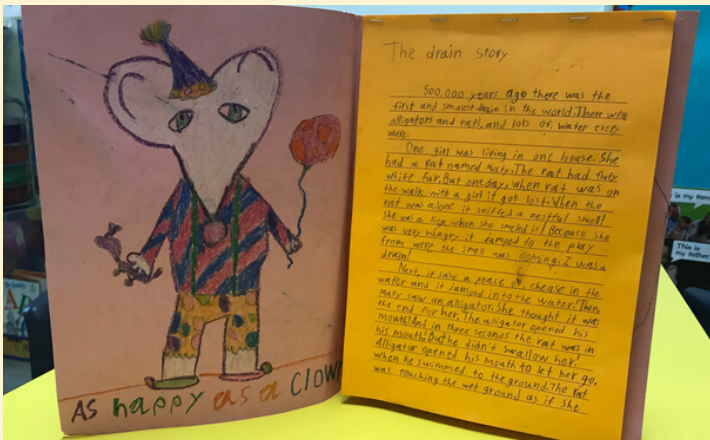 AS happy as a clown
The drain story
500.000 years ago there was the
first and smalest drain in the world. There were
alligators and rats, and lots of water every
where.
One girl was living in one house. She
had a rat named Maty. The rat had fluty
white fur. But one day, when rat was on
the walk with a girl it got lost. When the
rat was alone it sniffed a restful smell
she was a lion when she smeled it! Because she
was very hungry it jamped to the play
from were the smell was coming. I was a
drain!
Next, it saw a pease of chease in the
water and it jamped into the water! Then,
Maty saw an alligator. She thought it was
the end for her. The alligator opened his
mouth! And in three seconds the rat was in
his mouth! But he didn't swallow her!
Alligator opened his mouth to let her go,
when he swimmed to the ground. The rat
was touching the wet ground as if she
is my fam
This is
my father